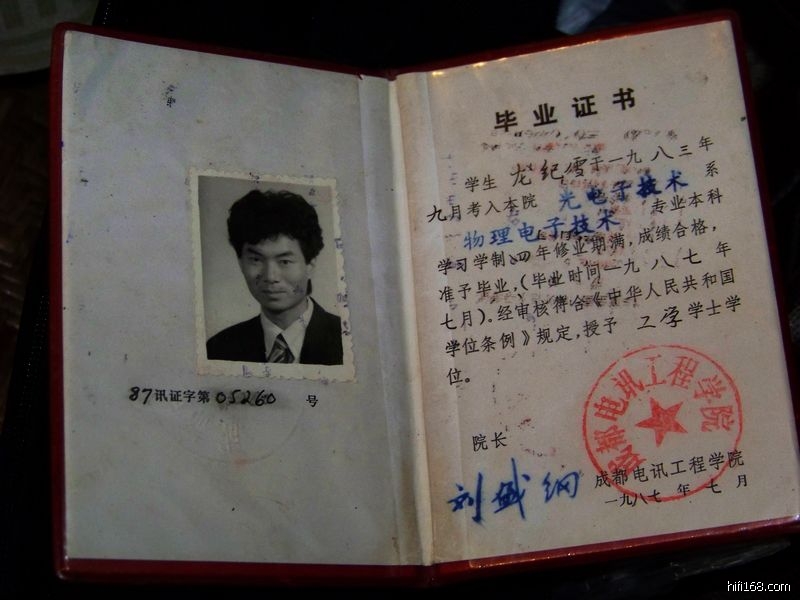 87讯证字第05260号
毕业证书
学生 龙纪雪于一九八三年
九月考入本院 光电子技术 系
物理电子技术 专业本科
学习学制四年修业期满,成绩合格,
准予毕业,(毕业时间一九八七年
七月)。经审核符合《中华人民共和国
学位条例》规定,授予 工学学士学
位。
院长
刘盛纲
成都电讯工程学院
成都电讯工程学院
一九八七年七月
hifi168.com